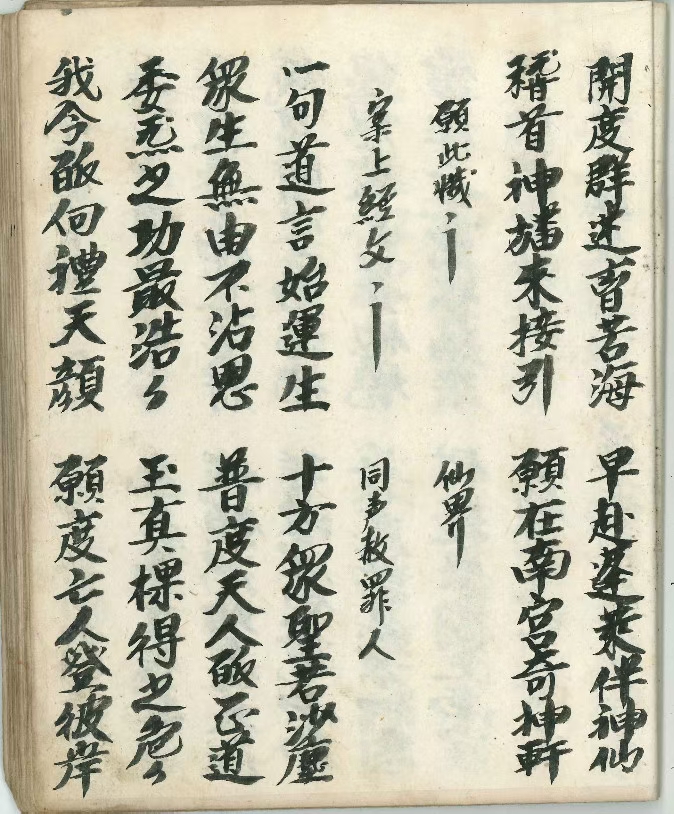 開度群迷登苦海 早赴蓬萊伴神仙
稽首神旛来接引 願在南宫寄神軒
願此懺〻 仙界
案上經文〻 同声救罪人
一句道言始運生 十方衆聖若沙塵
衆生無由不沾恩 普度天人皈正道
委炁之功最浩々 玉真棵得之危々
我今皈向禮天顔 願度亡人登彼岸